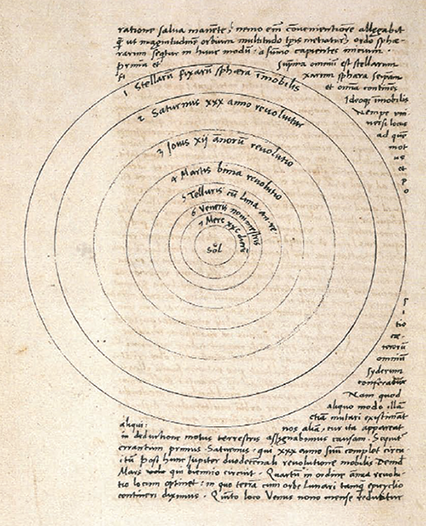 ratione salva manēte, nemo em̄ convenientiorē allegabit
q̄ ut magnitudinē orbium multitudo tp̄is metiatur, ordo sphae-
rarum sequitur in hunc modū: a summo capientes initium.
prima et suprema omniū est stellarum
fixarum sphaera seipsam
et omnia continens
Ideoq; imobilis
nempe uni
versi locus
ad quē
mot
us
et
p
o
1 Stellarū fixarū sphaera imobilis
2 Saturnus xxx anno revoluitur
3 Jovis xij annorū revolutio
4 Martis bima revolutio
5 Telluris cū Luna an. re.
6 Veneris nonimestris
7 Merc xxc dierū
Sol
s
i
tio
cae
terorū
omniū
syderum
conferatur
Nam quod
aliquo modo illā
etiā mutari existimāt
aliqui: nos aliā, cur ita appareat
in deductione motus terrestris assignabimus causam. Sequit
errantium primus Saturnus: qui xxx anno suū complet circu
itū post hunc Jupiter duodecennali revolutione mobilis Deinde
Mars qui biennio circuit. Quartū in ordine annua revolu
tio locum optinet: in quo terrā cum orbe Lunari tanq̄ epicyclio
contineri diximus. Quinto loco Venus nono mense reducitur